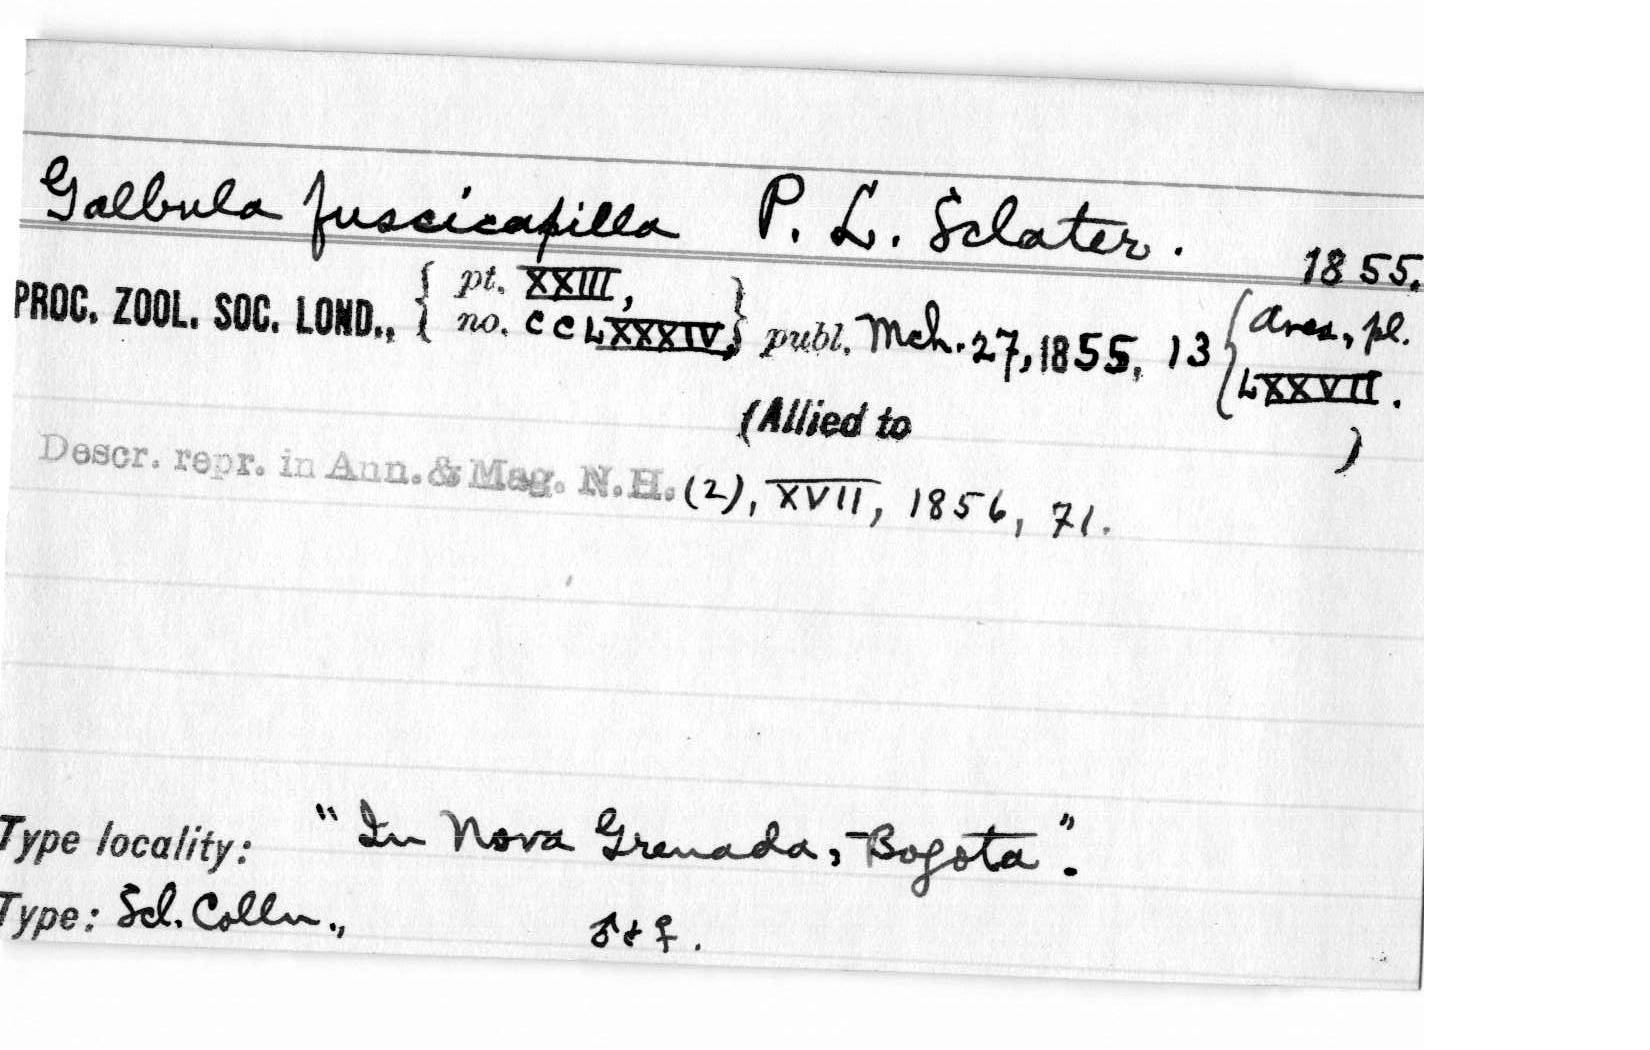 Galbula fuscicapilla P. L. Sclater. 1855.
PROC. ZOOL. SOC. LOND., { pt. XXIII, no. CCLXXXIV, } publ. Mch. 27, 1855, 13 { Aves, pl. LXXVII.
(Allied to )
Descr. repr. in Ann. & Mag. N.H. (2), XVII, 1856, 71.
Type locality: "In Nova Grenada, Bogota".
Type: Scl. Colln., ♂ & ♀.